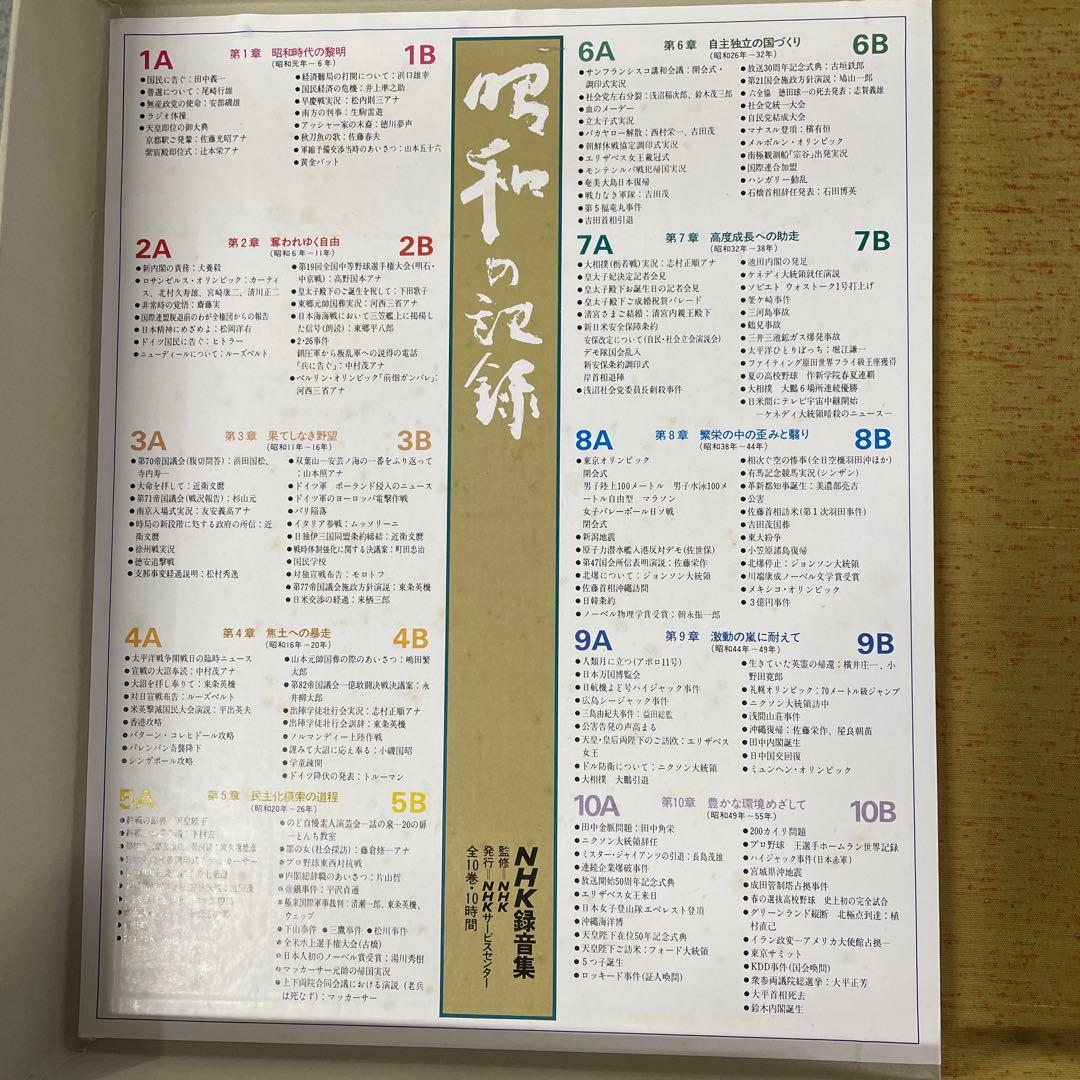 1A 第1章 昭和時代の黎明 1B
(昭和元年−6年)
●国民に告ぐ：田中義一
●普選について：尾崎行雄
●無産政党の使命：安部磯雄
●ラジオ体操
●天皇即位の御大典
京都駅ご発輦：佐藤光昭アナ
紫宸殿即位式：辻本栄アナ
●経済難局の打開について：浜口雄幸
●国民経済の危機：井上準之助
●早慶戦実況：松内則三アナ
●南方の判事：生駒雷遊
●アッシャー家の末裔：徳川夢声
●秋刀魚の歌：佐藤春夫
●軍縮予備交渉当時のあいさつ：山本五十六
●黄金バット
2A 第2章 奪われゆく自由 2B
(昭和6年−11年)
●新内閣の責務：犬養毅
●ロサンゼルス・オリンピック：カーティ
ス、北村久寿雄、宮崎康二、清川正二
●非常時の覚悟：斎藤実
●国際連盟脱退前のわが全権団からの報告
●日本精神にめざめよ：松岡洋右
●ドイツ国民に告ぐ：ヒトラー
●ニューディールについて：ルーズベルト
●第19回全国中等野球選手権大会(明石・
中京戦)：高野国本アナ
●皇太子殿下のご誕生を祝して：下田歌子
●東郷元帥国葬実況：河西三省アナ
●日本海海戦において三笠艦上に掲揚し
た信号(朗読)：東郷平八郎
●2・26事件
鎮圧軍から叛乱軍への説得の電話
「兵に告ぐ」：中村茂アナ
●ベルリン・オリンピック「前畑ガンバレ」：
河西三省アナ
3A 第3章 果てしなき野望 3B
(昭和11年−16年)
●第70帝国議会(腹切問答)：浜田国松、
寺内寿一
●大命を拝して：近衛文麿
●第71帝国議会(戦況報告)：杉山元
●南京入場式実況：友安義高アナ
●時局の新段階に処する政府の所信：近
衛文麿
●徐州戦実況
●徳安追撃戦
●支那事変経過説明：松村秀逸
●双葉山—安芸ノ海の一番をふり返って
：山本照アナ
●ドイツ軍 ポーランド侵入のニュース
●ドイツ軍のヨーロッパ電撃作戦
●パリ陥落
●イタリア参戦：ムッソリーニ
●日独伊三国同盟条約締結：近衛文麿
●戦時体制強化に関する決議案：町田忠治
●国民学校
●対独宣戦布告：モロトフ
●第77帝国議会施政方針演説：東条英機
●日米交渉の経過：来栖三郎
4A 第4章 焦土への暴走 4B
(昭和16年−20年)
●太平洋戦争開戦日の臨時ニュース
●宣戦の大詔奉読：中村茂アナ
●大詔を拝し奉りて：東条英機
●対日宣戦布告：ルーズベルト
●米英撃滅国民大会演説：平出英夫
●香港攻略
●バターン・コレヒドール攻略
●パレンバン奇襲降下
●シンガポール攻略
●山本元帥国葬の際のあいさつ：嶋田繁
太郎
●第82帝国議会一億敢闘決戦決議案：永
井柳太郎
●出陣学徒壮行会実況：志村正順アナ
●出陣学徒壮行会訓辞：東条英機
●ノルマンディー上陸作戦
●謹みて大詔に応え奉る：小磯国昭
●学童疎開
●ドイツ降伏の発表：トルーマン
5A 第5章 民主化模索の道程 5B
(昭和20年−26年)
●のど自慢素人演芸会—話の泉—20の扉
—とんち教室
●闇の女(社会探訪)：藤倉修一アナ
●プロ野球東西対抗戦
●内閣総辞職のあいさつ：片山哲
●帝銀事件：平沢貞通
●極東国際軍事裁判：清瀬一郎、東条英機、
ウェッブ
●下山事件 ●三鷹事件 ●松川事件
●全米水上選手権大会(古橋)
●日本人初のノーベル賞受賞：湯川秀樹
●マッカーサー元帥の帰国実況
●上下両院合同会議における演説(老兵
は死なず)：マッカーサー
昭和の記録
NHK録音集
監修＝NHK
発行＝NHKサービスセンター
全10巻・10時間
6A 第6章 自主独立の国づくり 6B
(昭和26年−32年)
●サンフランシスコ講和会議：開会式・
調印式実況
●社会党左右分裂：浅沼稲次郎、鈴木茂三郎
●血のメーデー
●立太子式実況
●バカヤロー解散：西村栄一、吉田茂
●朝鮮休戦協定調印式実況
●エリザベス女王戴冠式
●モンテンルパ戦犯帰国実況
●奄美大島日本復帰
●戦力なき軍隊：吉田茂
●第5福竜丸事件
●吉田首相引退
●放送30周年記念式典：古垣鉄郎
●第21国会施政方針演説：鳩山一郎
●六全協 徳田球一の死去発表：志賀義雄
●社会党統一大会
●自民党結成大会
●マナスル登頂：槇有恒
●メルボルン・オリンピック
●南極観測船「宗谷」出発実況
●国際連合加盟
●ハンガリー動乱
●石橋首相辞任発表：石田博英
7A 第7章 高度成長への助走 7B
(昭和32年−38年)
●大相撲(栃若戦)実況：志村正順アナ
●皇太子妃決定記者会見
●皇太子殿下お誕生日の記者会見
●皇太子殿下ご成婚祝賀パレード
●清宮さまご結婚：清宮内親王殿下
●新日米安全保障条約
安保改定について(自民・社会立会演説会)
デモ隊国会乱入
新安保条約調印式
岸首相退陣
●浅沼社会党委員長刺殺事件
●池田内閣の発足
●ケネディ大統領就任演説
●ソビエト ウォストーク1号打上げ
●釜ケ崎事件
●三河島事故
●鶴見事故
●三井三池鉱ガス爆発事故
●太平洋ひとりぼっち：堀江謙一
●ファイティング原田世界フライ級王座獲得
●夏の高校野球 作新学院春夏連覇
●大相撲 大鵬6場所連続優勝
●日米間にテレビ宇宙中継開始
—ケネディ大統領暗殺のニュース—
8A 第8章 繁栄の中の歪みと翳り 8B
(昭和38年−44年)
●東京オリンピック
開会式
男子陸上100メートル 男子水泳100メ
ートル自由型 マラソン
女子バレーボール日ソ戦
閉会式
●新潟地震
●原子力潜水艦入港反対デモ(佐世保)
●第47国会所信表明演説：佐藤栄作
●北爆について：ジョンソン大統領
●佐藤首相沖縄訪問
●日韓条約
●ノーベル物理学賞受賞：朝永振一郎
●相次ぐ空の惨事(全日空機羽田沖ほか)
●有馬記念競馬実況(シンザン)
●革新都知事誕生：美濃部亮吉
●公害
●佐藤首相訪米(第1次羽田事件)
●吉田茂国葬
●東大紛争
●小笠原諸島復帰
●北爆停止：ジョンソン大統領
●川端康成ノーベル文学賞受賞
●メキシコ・オリンピック
●3億円事件
9A 第9章 激動の嵐に耐えて 9B
(昭和44年−49年)
●人類月に立つ(アポロ11号)
●日本万国博覧会
●日航機よど号ハイジャック事件
●広島シージャック事件
●三島由紀夫事件：益田総監
●公害告発の声高まる
●天皇・皇后両陛下のご訪欧：エリザベス
女王
●ドル防衛について：ニクソン大統領
●大相撲 大鵬引退
●生きていた英霊の帰還：横井庄一、小
野田寛郎
●札幌オリンピック：70メートル級ジャンプ
●ニクソン大統領訪中
●浅間山荘事件
●沖縄復帰：佐藤栄作、屋良朝苗
●田中内閣誕生
●日中国交回復
●ミュンヘン・オリンピック
10A 第10章 豊かな環境めざして 10B
(昭和49年−55年)
●田中金脈問題：田中角栄
●ニクソン大統領辞任
●ミスター・ジャイアンツの引退：長島茂雄
●連続企業爆破事件
●放送開始50周年記念式典
●エリザベス女王来日
●日本女子登山隊エベレスト登頂
●沖縄海洋博
●天皇陛下在位50年記念式典
●天皇陛下ご訪米：フォード大統領
●5つ子誕生
●ロッキード事件(証人喚問)
●200カイリ問題
●プロ野球 王選手ホームラン世界記録
●ハイジャック事件(日本赤軍)
●宮城県沖地震
●成田管制塔占拠事件
●春の選抜高校野球 史上初の完全試合
●グリーンランド縦断 北極点到達：植
村直己
●イラン政変—アメリカ大使館占拠—
●東京サミット
●KDD事件(国会喚問)
●衆参両議院総選挙：大平正芳
●大平首相死去
●鈴木内閣誕生